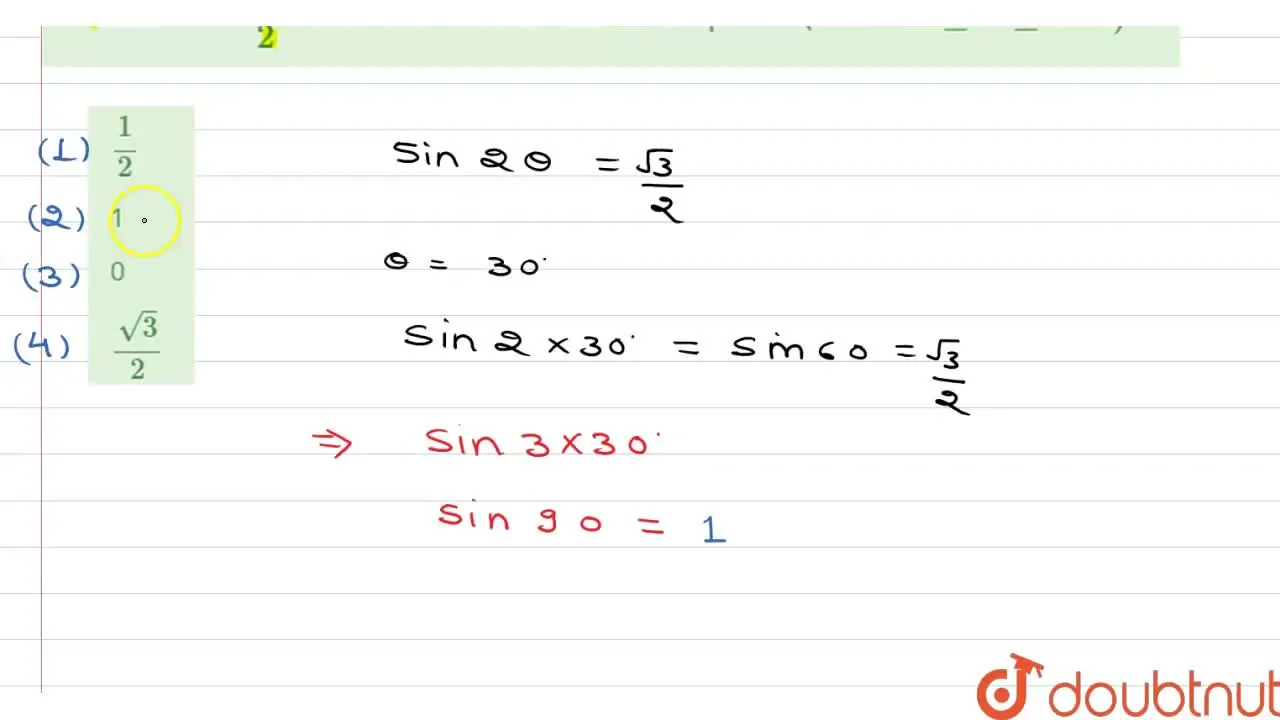 2
(1) 1/2
(2) 1
(3) 0
(4) √3/2
Sin 2θ = √3/2
θ = 30°
Sin 2 × 30° = Sin 60 = √3/2
⇒ Sin 3 × 30°
Sin 90 = 1
doubtnut